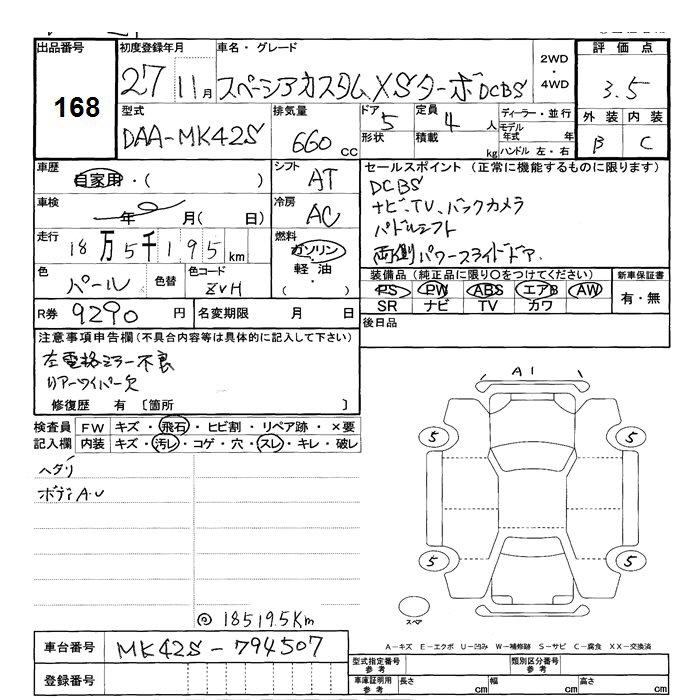 出品番号 初度登録年月 車名・グレード 評価点
168
27 11月 スペーシアカスタムXSターボDCBS 2WD・4WD 3.5
型式 排気量 ドア 定員 ディーラー・並行 外装 内装
DAA-MK42S 660cc 5 4人 モデル年式 年 B C
形状 積載 kg ハンドル 左・右
車歴 シフト セールスポイント (正常に機能するものに限ります)
自家用・( ) AT DCBS
車検 冷房 ナビ、TV、バックカメラ
年 月( 日) AC パドルシフト
走行 燃料 両側パワースライドドア.
18万5千195km ガソリン・軽油・( )
色 色替 色コード 装備品(純正品に限り○をつけてください) 新車保証書
パール ZVH PS PW ABS エアB AW 有・無
SR ナビ TV カワ
R券 9290円 名変期限 月 日 後日品
注意事項申告欄(不具合内容等は具体的に記入して下さい)
左電格ミラー不良
リアーワイパー欠
修復歴 有 〔箇所 〕
A1
検査員 FW キズ・飛石・ヒビ割・リペア跡・×要
記入欄 内装 キズ・汚レ・コゲ・穴・スレ・キレ・破レ
5 5
ヘタリ
ボディA.U
5 5
◎ 185195Km
スペア
車台番号 MK42S-794507
A-キズ E-エクボ U-凹み W-補修跡 S-サビ C-腐食 XX-交換済
型式指定番号 参考 類別区分番号 参考
登録番号 車庫証明用 参考 長さ cm 幅 cm 高さ cm